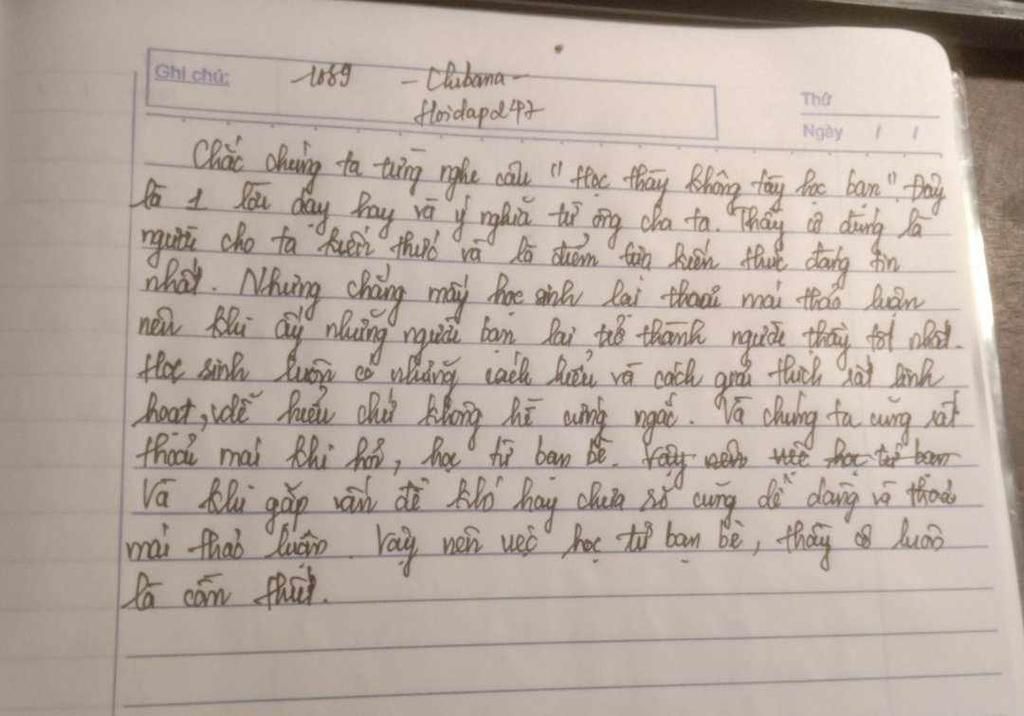 Ghi chú: 1089 - Chibana -
Hoidap247
Thứ
Ngày / /
Chắc chúng ta từng nghe câu "Học thầy không tày học bạn". Đây
là 1 lời dạy hay và ý nghĩa từ ông cha ta. Thầy cô đúng là
người cho ta kiến thức và là điểm tựa kiến thức đáng tin
nhất. Nhưng chẳng mấy học sinh lại thoải mái thảo luận
nên khi ấy những người bạn lại trở thành người thầy tốt nhất.
Học sinh luôn có những cách hiểu và cách giải thích rất linh
hoạt, dễ hiểu chứ không hề cứng ngắc. Và chúng ta cũng rất
thoải mái khi hỏi, học từ bạn bè. Vậy nên việc học từ bạn
Và khi gặp vấn đề khó hay chưa rõ cũng dễ dàng và thoải
mái thảo luận. Vậy nên việc học từ bạn bè, thầy cô luôn
là cần thiết.